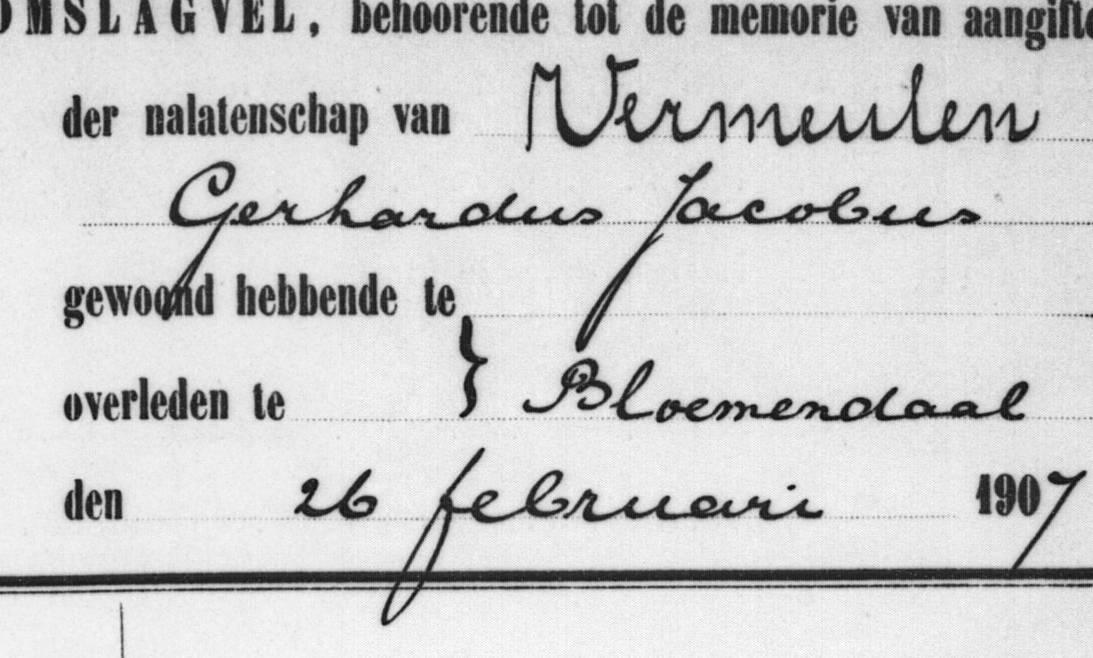 OMSLAGVEL, behoorende tot de memorie van aangifte
der nalatenschap van Vermeulen
Gerhardus Jacobus
gewoond hebbende te
overleden te } Bloemendaal
den 26 februari 1907